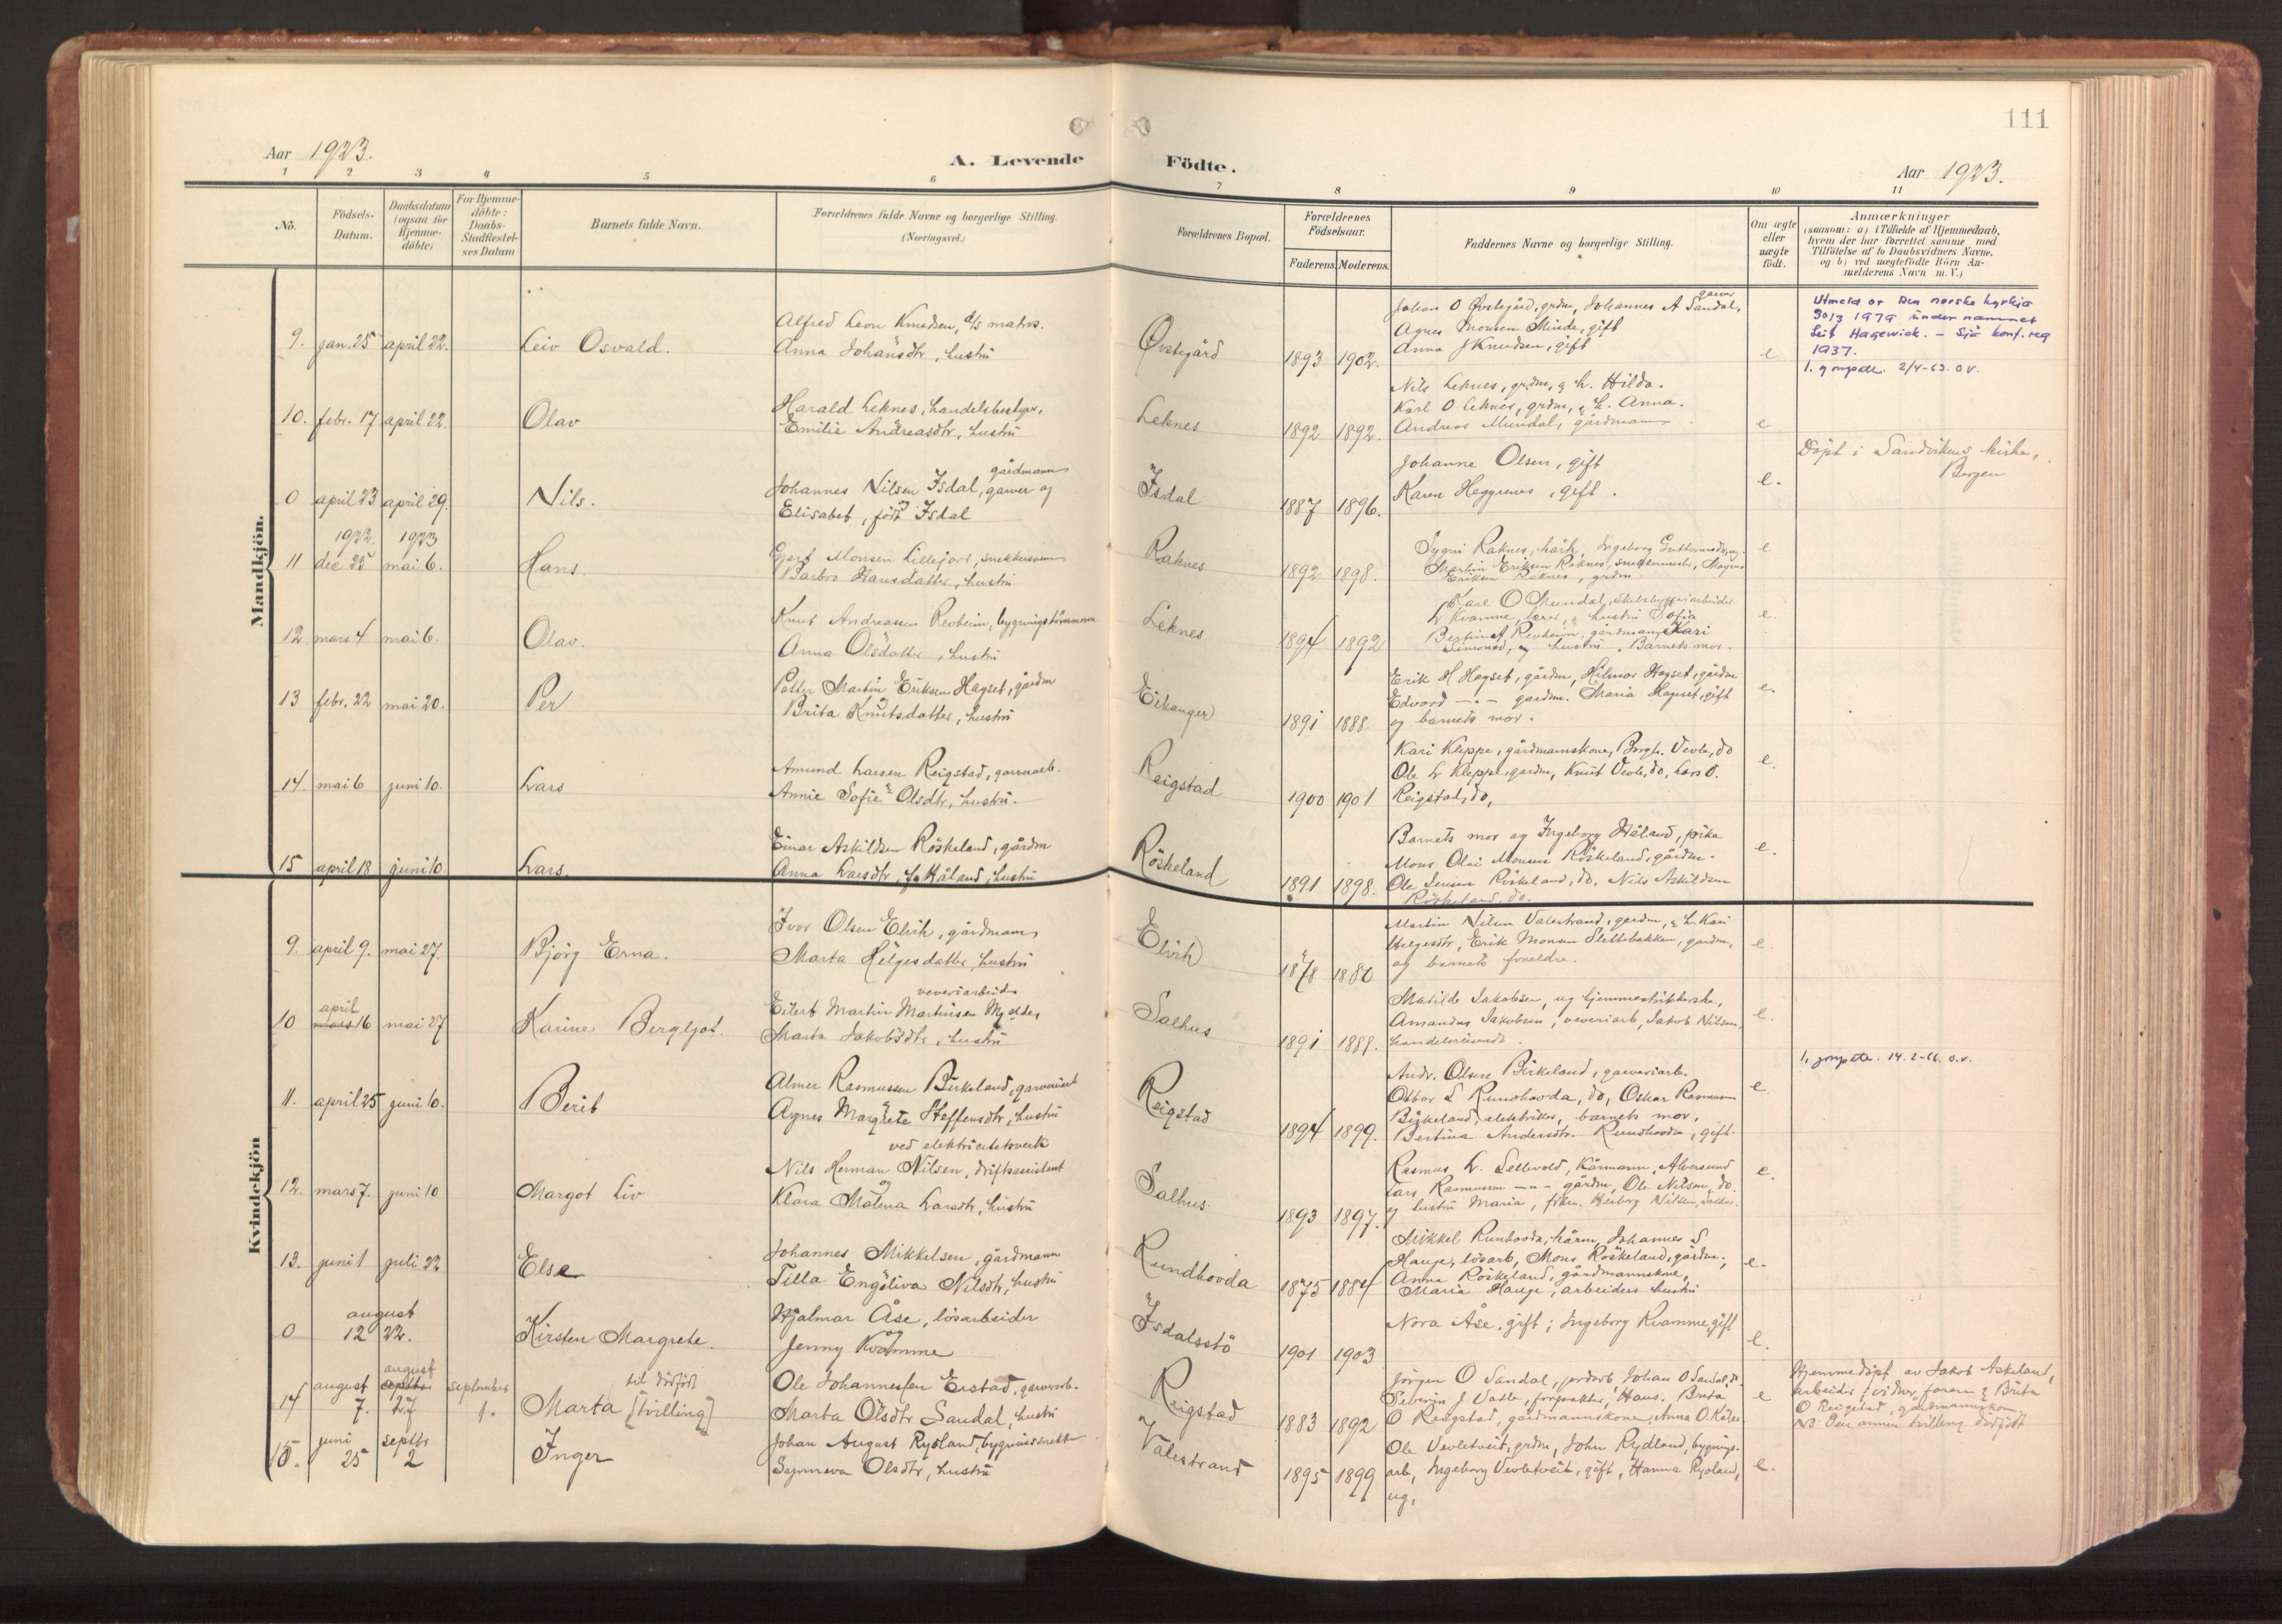 111
Aar 1923.
A. Levende Födte.
Aar 1923.
1 2 3 4 5 6 7 8 9 10 11
No.
Födsels-Datum.
Daabsdatum (ogsaa for Hjemme-döbte)
For Hjemme-döbte: Daabs-Stadfæstel-ses Datum
Barnets fulde Navn.
Forældrenes fulde Navne og borgerlige Stilling.
(Næringsvei.)
Forældrenes Bopæl.
Forældrenes Födselsaar.
Faderens. Moderens.
Faddernes Navne og borgerlige Stilling.
Om ægte eller uægte födt.
Anmærkninger
(saasom: a) i Tilfælde af Hjemmedaab,
hvem der har forrettet samme med
Tilföielse af to Daabsvidners Navne,
og b) ved uægtefödte Börn An-
melderens Navn m. V.)
Mandkjön.
9. jan. 25 april 22. Leiv Osvald.
Alfred Leon Knudsen, d/s matros.
Anna Johansdtr, hustru
Øvstegård 1893 1902.
Johan O Øvstegård, grdm, Johannes A Sandal, garver
Agnes Monsen Minde, gift
Anna J Knudsen, gift
e
Utmeld or Den norske kyrkja
30/3 1979 under namnet
Leif Hagewick. – Sjå konf.reg
1937.
10. febr. 17 april 22. Olav
Harald Leknes, handelsbestyrer,
Emilie Andreasdtr, hustru
Leknes 1892 1892.
Nils Leknes, grdm, & h. Hilda.
Karl O Leknes, grdm, & h. Anna.
Andreas Mundal, gårdmann
e
1. g 2/4-63. O.V.
0 april 23 april 29. Nils.
Johannes Nilsen Isdal, garver og gårdmann
Elisabet, født Isdal
Isdal 1887 1896.
Johanne Olsen, gift
Karen Heggrenes, gift.
e.
Døpt i Sandvikens kirke,
Bergen
1922. 1923
11 dec 25 mai 6. Hans.
Gjert Monsen Lillejord, snekkersvenn
Barbro Hansdatter, hustru
Raknes 1892 1898.
Sygni Raknes, kårk, Ingeborg Guttormsdtr, ug.
Martin Eriksen Raknes, snekkermester, Magnus
Eriksen Raknes, grdm
e
12. mars 4 mai 6. Olav.
Knut Andreassen Revheim, bygningstömmerm
Anna Olsdatter, hustru
Leknes 1894 1892
Karl O Mundal,
L Kvamme, lærer, & hustru Sofia
Revheim, gårdmann, Kari
Simonsd, og hustru. Barnets mor.
e.
13 febr. 22 mai 20. Per
Petter Martin Eriksen Hagset, gårdm
Brita Knutsdatter, hustru
Eikanger 1891 1888.
Erik H Hagset, gårdm, Hilmar Hagset, gårdm
Edvard — " — gardm. Maria Hagset, gift
og barnets mor.
e.
14. mai 6 juni 10. Lars
Amund Larsen Reigstad, garverarb.
Annie Sofie Olsdtr, hustru.
Reigstad 1900 1901
Kari Kleppe, gårdmannskone, Borgh. Vevle, do
Ole L Kleppe, gardm, Knut Vevle, do, Lars O.
Reigstad, do,
e.
15 april 18 juni 10. Lars.
Einar Askildsen Röskeland, gårdm
Anna Larsdtr, f. Håland, hustru
Röskeland 1891 1898.
Barnets mor og Ingeborg Håland, pike
Mons Olai Monsen Röskeland, gårdm.
Ole Jensen Röskeland, do, Nils Askildsen
Röskeland, do.
e.
Kvindekjön
9. april 9. mai 27. Bjørg Erna.
Ivar Olsen Elvik, gårdmann
Marta Helgesdatter, hustru
Elvik 1878 1880
Martin Nilsen Valestrand, gardm, & h. Kari
Helgesdtr, Erik Monsen Slettebakken, gardm,
og barnets foreldre.
e.
10 april mars 16 mai 27 Karine Bergljot.
veveriarbeider
Eilert Martin Martinsen Myelder
Marta Jakobsdtr, hustru
Salhus 1891 1888.
Matilde Jakobsen, ug hjemmestrikkerske,
Amandus Jakobsen, veveriarb, Jakob Nilsen,
handelsreisende
e.
11. april 25 juni 10. Berit
Almer Rasmussen Birkeland, garveriarb
Agnes Margrete Steffensdtr, hustru
Reigstad 1894 1899.
Andr. Olsen Birkeland, garveriarb.
Ottar L Rundhovda, do, Oskar Rasmussen
Birkeland, elektriker, barnets mor,
Bertina Andersdtr. Rundhovda, gift.
e.
1. 14. 2-66. O.V.
12. mars 7. juni 10 Margot Liv
ved elektricitetsverk
Nils Herman Nilsen, driftsassistent
Klara Målena Larsdtr, hustru
Salhus 1893 1897.
Rasmus L. Sellevold, kårmann, Alversund
Lars Rasmussen — " — gårdm, Ole Nilsen, do.
og hustru Maria, frken. Herborg Nilsen,
e.
13. juni 1 juli 22 Else
Johannes Mikkelsen, gårdmann
Tilla Engeliva Nilsdtr, hustru
Rundhovda 1875 1884
Mikkel Rundhovda, kårm, Johannes S
Hauge, lösarb, Mons Röskeland, gårdm,
Anna Röskeland, gårdmannskone,
Maria Hauge, arbeiders hustru
e.
august
0 12 22. Kirsten Margrete.
Hjalmar Åse, lösarbeider
og
Jenny Kvamme
Isdalsstö 1901 1903
Nora Åse, gift; Ingeborg Kvamme, gift
e.
14 august 7. august septbr 27 september 1. Marta [tvilling] til dödfödt
Ole Johannessen Eistad, garverarb.
Marta Olsdtr Sandal, hustru
Reigstad 1883 1892
Jörgen O Sandal, jordarb, Johan O Sandal, do.
Severin J Vatle, forpakter, Haus. Brita
O Reigstad, gårdmannskone, Anna O.
e
Hjemmedöpt av Jakob Askeland,
arbeider; vidner, faren & Brita
O Reigstad, gårdmannskone
NB Den annen tvilling dödfödt
15. juni 25 septbr 2 Inger
Johan August Rydland, bygningssnekker
Synneva Olsdtr, hustru
Valestrand 1895 1899
Ole Vevletveit, grdm, John Rydland, bygnings-
arb, Ingeborg Vevletveit, gift, Hanna Rydland,
ug,
e.